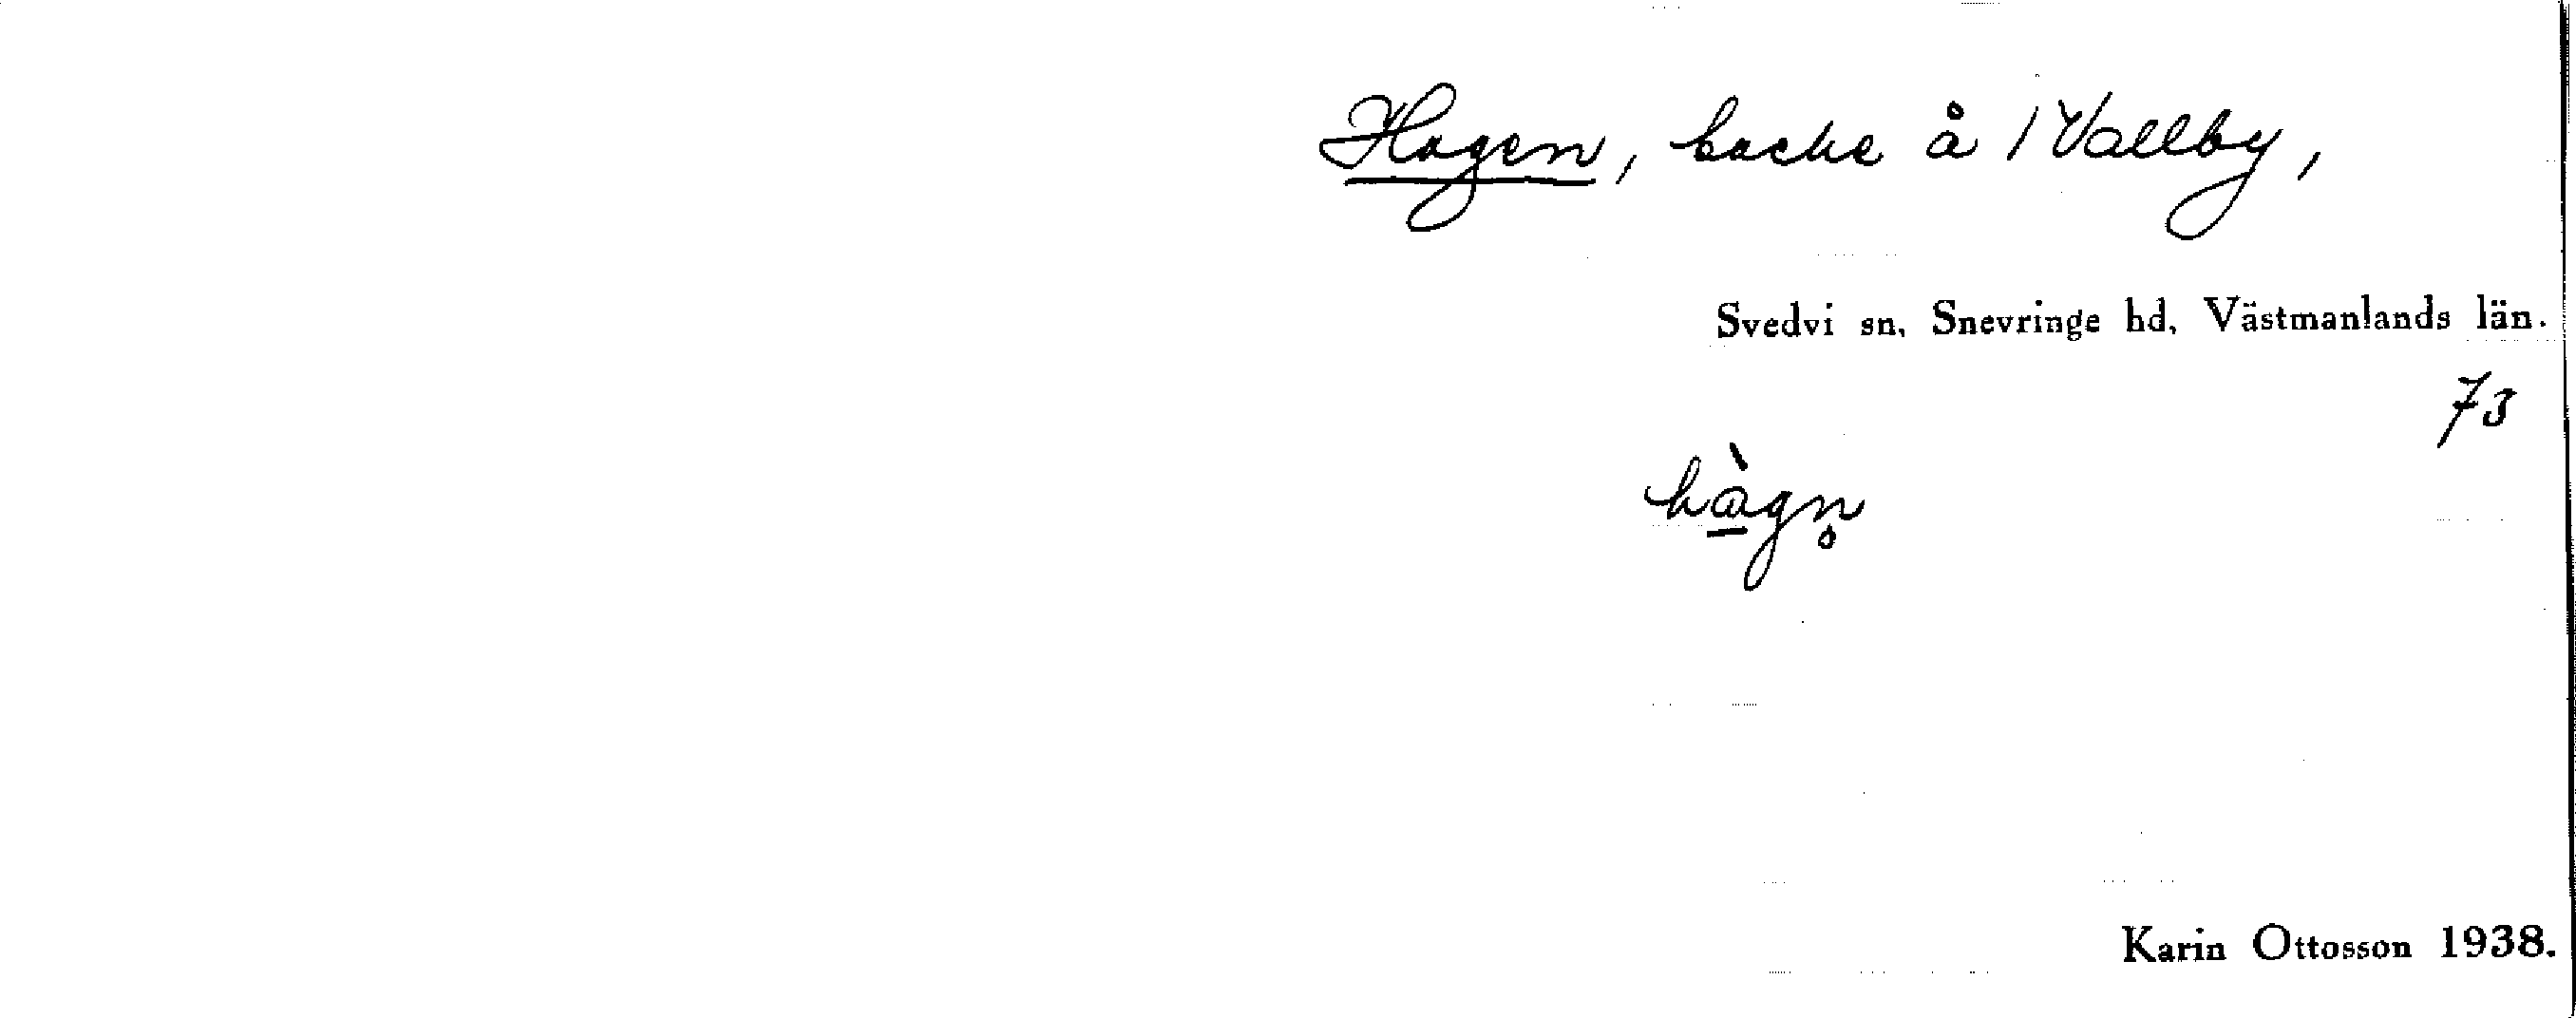 Hagen, backe å /Vallby,
Svedvi sn, Snevringe hd, Västmanlands län.
73
hàgn̥
Karin Ottosson 1938.